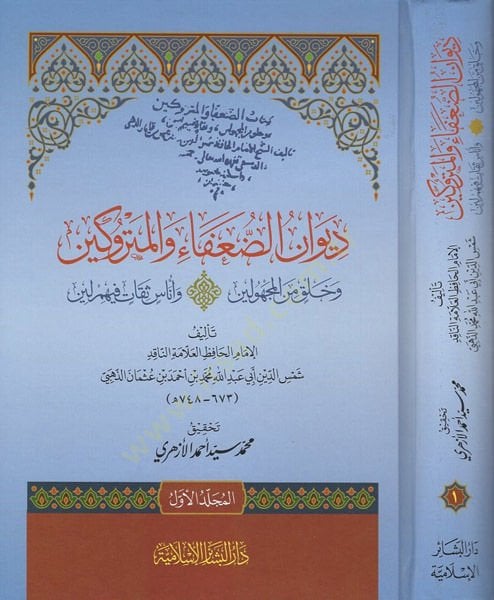 كتاب الضعفاء والمتروكين
ديوان الضعفاء والمتروكين
وخلق من المجهولين وأناس ثقات فيهم لين
تأليف
الإمام الحافظ العلامة الناقد
شمس الدين أبي عبد الله محمد بن أحمد بن عثمان الذهبي
(٦٧٣-٧٤٨ھ)
تحقيق
محمد سيد أحمد الأزهري
المجلد الأول
دار البشائر الإسلامية
ديوان الضعفاء والمتروكين
وخلق من المجهولين وأناس ثقات فيهم لين
تأليف
الإمام الحافظ العلامة الناقد
شمس الدين أبي عبد الله محمد الذهبي
تحقيق
محمد سيد أحمد الأزهري
١
دار البشائر
الإسلامية